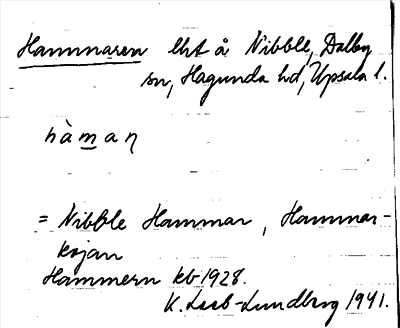 Hammaren lht å Nibble, Dalby
sn, Hagunda hd, Upsala l.
hàmaη
= Nibble Hammar, Hammar-
kojan
Hammern kb 1928.
K. Leeb-Lundberg 1941.